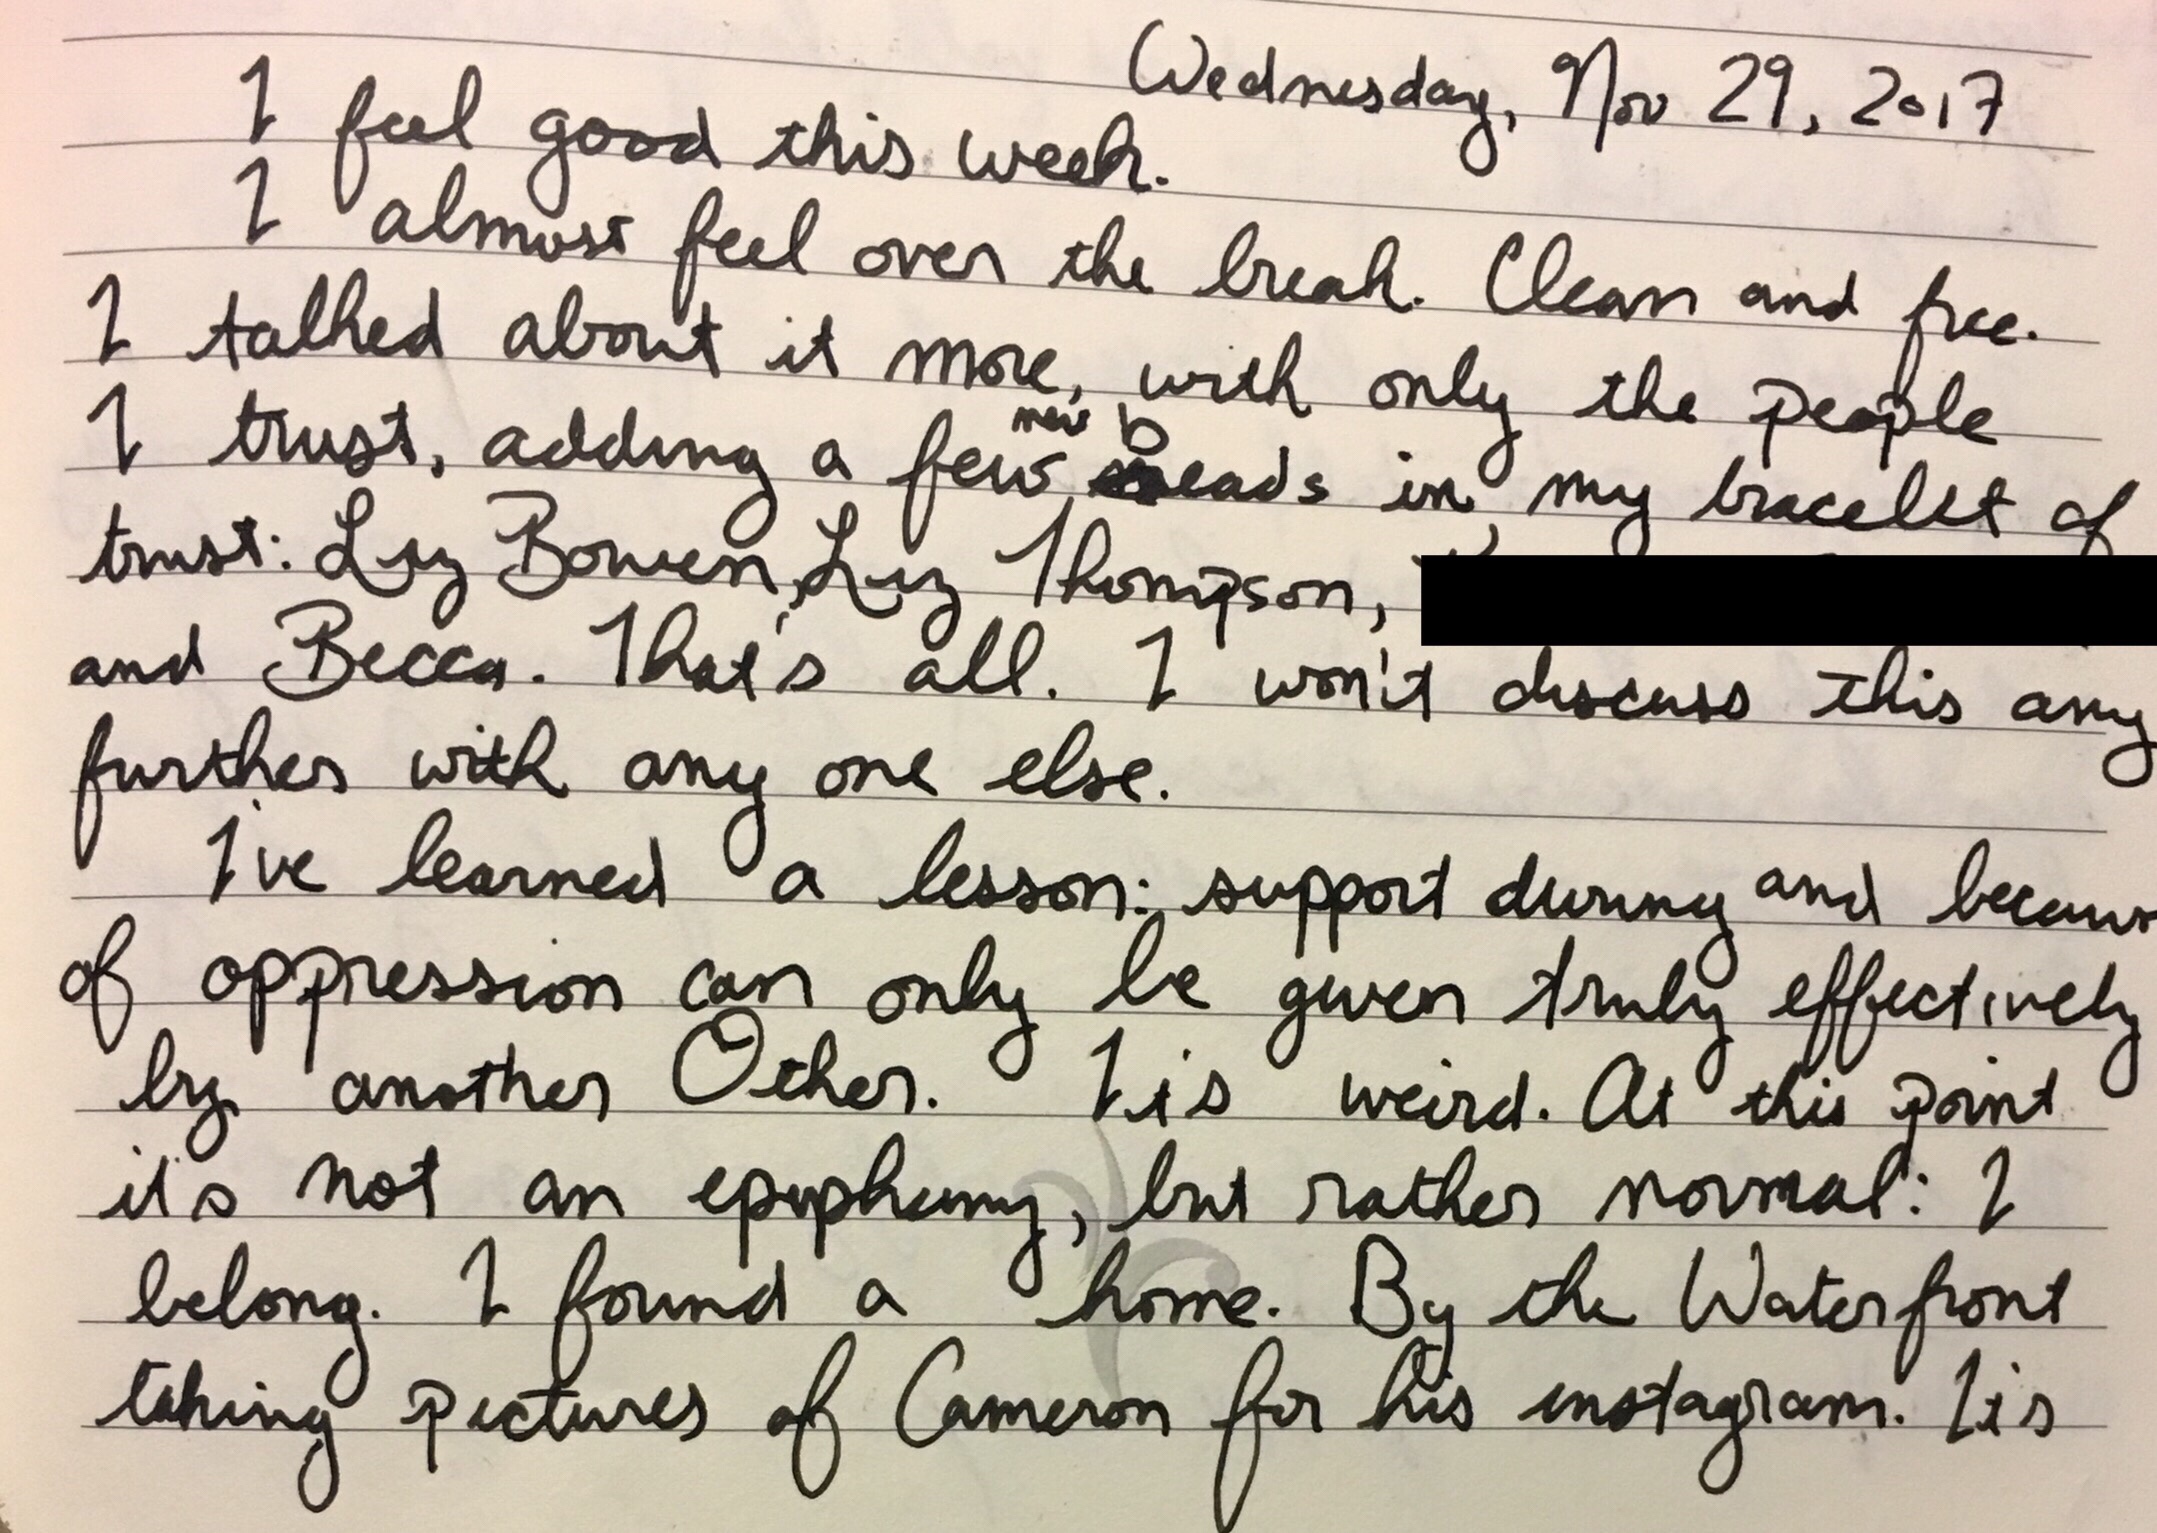 Wednesday, Nov 29, 2017
I feel good this week.
I almost feel over the break. Clean and free.
I talked about it more, with only the people
I trust, adding a few new beads in my bracelet of
trust: Liz Bowen, Liz Thompson,
and Becca. That's all. I won't discuss this any
further with any one else.
I've learned a lesson: support during and because
of oppression can only be given truly effectively
by another Other. It's weird. At this point
it's not an epiphany, but rather normal: I
belong. I found a home. By the Waterfront
taking pictures of Cameron for his instagram. It's